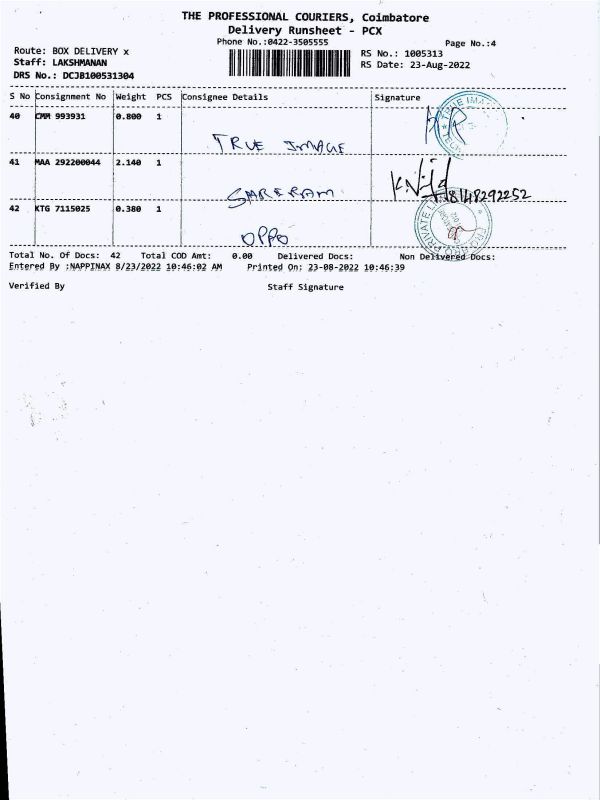 THE PROFESSIONAL COURIERS, Coimbatore
Delivery Runsheet - PCX
Phone No.:0422-3505555
Page No.:4
Route: BOX DELIVERY x
RS No.: 1005313
Staff: LAKSHMANAN
RS Date: 23-Aug-2022
DRS No.: DCJB100531304
S No Consignment No Weight PCS Consignee Details Signature
40 CMM 993931 0.800 1
TRUE IMAGE
41 MAA 292200044 2.140 1
8148292252
42 KTG 7115025 0.380 1
OPPO
Total No. Of Docs: 42 Total COD Amt: 0.00 Delivered Docs: Non Delivered Docs:
Entered By :NAPPINAX 8/23/2022 10:46:02 AM Printed On: 23-08-2022 10:46:39
Verified By Staff Signature